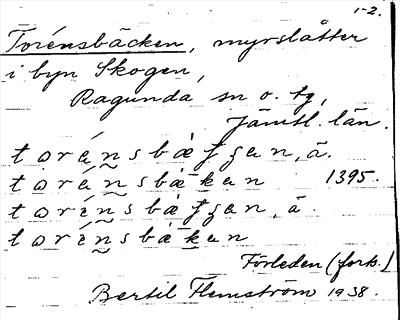 1-2.
Torénsbäcken, myrslåtter
i byn Skogen,
Ragunda sn o. tg,
Jämtl. län.
torénsbæ̀ʃʃan, ä.
toránsbækan 1395.
torénsbæ̀ʃʃan, ä.
torénsbækan
Förleden (forts.)
Bertil Flemström 1938.